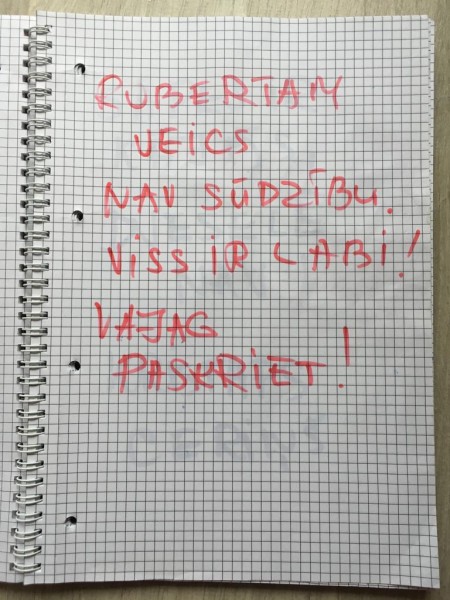 RUBERTAM
VEICS
NAV SŪDZĪBU.
VISS IR LABI!
VAJAG
PASKRIET!